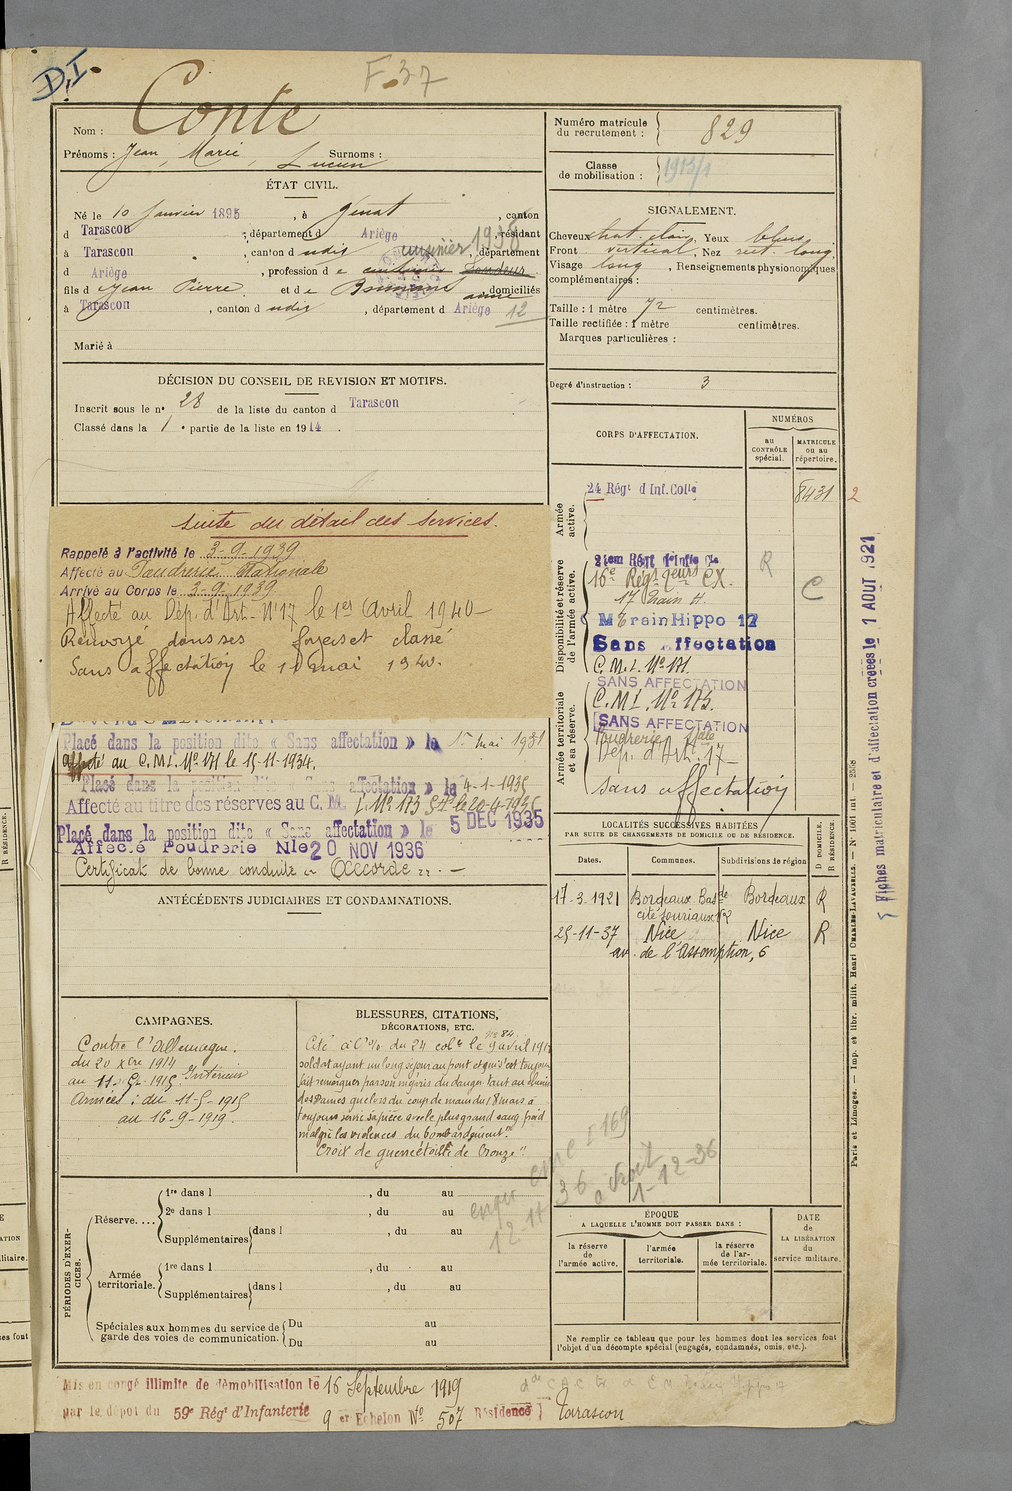 D.I.
F.37
Nom : Conte
Prénoms : Jean, Marie, Lucien Surnoms :
ÉTAT CIVIL.
Né le 10 Janvier 1895, à Génat, canton
d Tarascon, département d Ariège, résidant
à Tarascon, canton d udis, département
d Ariège, profession d e cuisinier 1936
fils d e Jean Pierre et de anne, domiciliés
à Tarascon, canton d udis, département d Ariège 12
Marié à
DÉCISION DU CONSEIL DE REVISION ET MOTIFS.
Inscrit sous le nº 28 de la liste du canton d Tarascon
Classé dans la 1 e partie de la liste en 1914.
suite du détail des services.
Rappelé à l'activité le 3-9-1939
Affecté au Poudrerie Nationale
Arrivé au Corps le 3-9-1939
Affecté au Dép. d'Art. Nº17 le 1er Avril 1940
Renvoyé dans ses foyers et classé
Sans affectation le 11 mai 1940.
Placé dans la position dite « Sans affectation » le 15 mai 1931
affecté au C.M.I. Nº 171 le 15-11-1934.
Placé dans la position dite « Sans affectation » le 4-1-1935
Affecté au titre des réserves au C. M. I. Nº 173 le 20-4-1935
Placé dans la position dite « Sans affectation » le 5 DEC 1935
Affecté Poudrerie Nle 20 NOV 1936
Certificat de bonne conduite « Accordé »
ANTÉCÉDENTS JUDICIAIRES ET CONDAMNATIONS.
CAMPAGNES.
Contre l'Allemagne.
du 20 Xbre 1914
au 11-5-1915 Intérieur
Armées : du 11-5-1915
au 16-9-1919.
BLESSURES, CITATIONS,
DÉCORATIONS, ETC.
Cité à l'O/ du 24 colal nº 84 le 9 avril 191
soldat ayant un long séjour au front et qui s'est toujours
fait remarquer par son mépris du danger tant au chemin
des Dames que lors du coup de main du 18 mars a
toujours servi sa pièce avec le plus grand sang froid
malgré les violences du bombardement.
Croix de guerre étoile de bronze"
PÉRIODES D'EXERCICES.
Réserve.... 1re dans l , du au
2e dans l , du au
Supplémentaires dans l , du au
Armée territoriale. 1re dans l , du au
Supplémentaires dans l , du au
Spéciales aux hommes du service de garde des voies de communication. Du au
Du au
Mis en congé illimité de démobilisation le 16 Septembre 1919
par le dépôt du 59e Régt d'Infanterie 9 er Echelon Nº 507 Résidence Tarascon
Numéro matricule du recrutement : 829
Classe de mobilisation : 1913/1
SIGNALEMENT.
Cheveux chat. clair, Yeux bleus
Front vertical, Nez rect. long
Visage long, Renseignements physionomiques
complémentaires :
Taille : 1 mètre 72 centimètres.
Taille rectifiée : 1 mètre centimètres.
Marques particulières :
Degré d'instruction : 3
CORPS D'AFFECTATION.
NUMÉROS
au CONTRÔLE spécial.
MATRICULE ou au répertoire.
Armée active.
24 Régt d Inf. Colle 8431 2
Disponibilité et réserve de l'armée active.
R
C
17 Train H.
TrainHippo 17
Sans Affectation
C.M.I. Nº 171
SANS AFFECTATION
Armée territoriale et sa réserve.
C.M.I. Nº 173.
SANS AFFECTATION
Poudrerie Nale
Dép. d'Art. 17
sans affectation
LOCALITÉS SUCCESSIVES HABITÉES
PAR SUITE DE CHANGEMENTS DE DOMICILE OU DE RÉSIDENCE.
Dates. Communes. Subdivisions de région D DOMICILE. R RÉSIDENCE.
17-3-1921 Bordeaux Bordeaux R
25-11-37 Nice Nice R
av. de l'Assomption, 6
ÉPOQUE
A LAQUELLE L'HOMME DOIT PASSER DANS :
la réserve de l'armée active.
l'armée territoriale.
la réserve de l'armée territoriale.
DATE de LA LIBÉRATION du service militaire.
Ne remplir ce tableau que pour les hommes dont les services font
l'objet d'un décompte spécial (engagés, condamnés, omis, etc.).
Fiches matriculaire et d'affectation créées le 1 AOUT 1921
Paris et Limoges. — Imp. et libr. milit. Henri CHARLES-LAVAUZELLE.